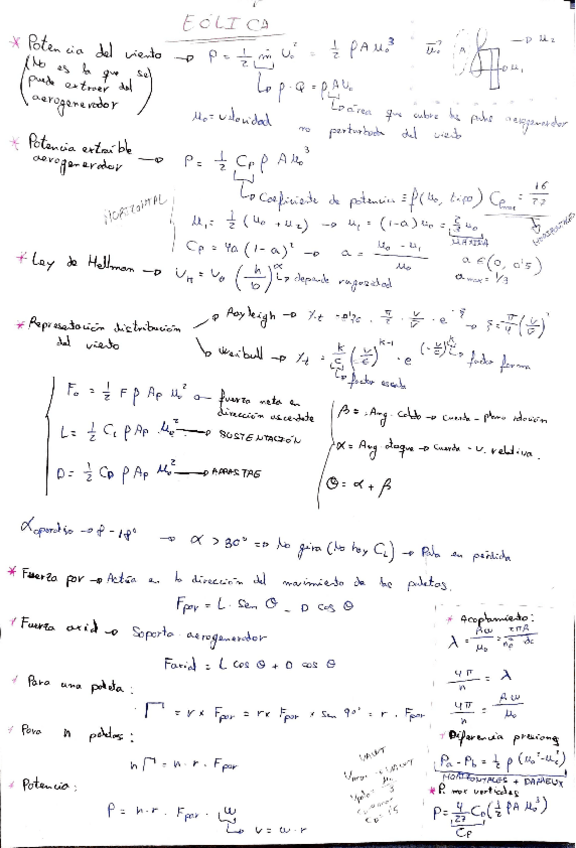 EÓLICA
* Potencia del viento → P = 1/2 ṁ U₀² = 1/2 ρ A u₀³
(No es la que se puede extraer del aerogenerador)
ρ · Q = ρ A U₀
área que cubre las palas aerogenerador
u₀ = velocidad no perturbada del viento
* Potencia extraíble aerogenerador → P = 1/2 Cp ρ A u₀³
Coeficiente de potencia = f(u₀, tipo) Cp = 16/27
HORIZONTALES
HORIZONTAL
u₁ = 1/2 (u₀ + u₂) → u₁ = (1-a) u₀ = 2/3 u₀
Cp = 4a (1-a)² → a = (u₀ - u₁)/u₀
a ∈ (0, 0'5)
a max = 1/3
* Ley de Hellman → depende rugosidad
* Representación distribución del viento
Rayleigh
Weibull
factor forma
factor escala
F₀ = 1/2 F ρ Ap u₀² → fuerza neta en dirección ascendente
L = 1/2 CL ρ Ap → SUSTENTACIÓN
D = 1/2 CD ρ Ap → ARRASTRE
β = Ang. Calado → cuerda - plano rotación
α = Ang ataque → cuerda - v. relativa.
θ = α + β
α operativo → 8 - 18° → α > 30° => No gira (No hay CL) → Pala en pérdida
* Fuerza par → Actúa en la dirección del movimiento de las paletas.
Fpar = L · sen θ - D cos θ
* Fuerza axial → Soporta aerogenerador
Faxial = L cos θ + D cos θ
* Para una paleta:
Γ = r × Fpar = r × Fpar × sen 90° = r · Fpar
* Para n paletas:
nΓ = n · r · Fpar
* Potencia:
P = n · r · Fpar · ω
v = ω · r
* Acoplamiento:
4π/n = λ
4π/n = Rω/u₀
* Diferencia presiones
Pa - Pb = 1/2 ρ (u₀² - u₂²)
HORIZONTALES + DARRIEUX
* P. max verticales
P = 4/27 CD (1/2 ρ A u₀³)
Cp